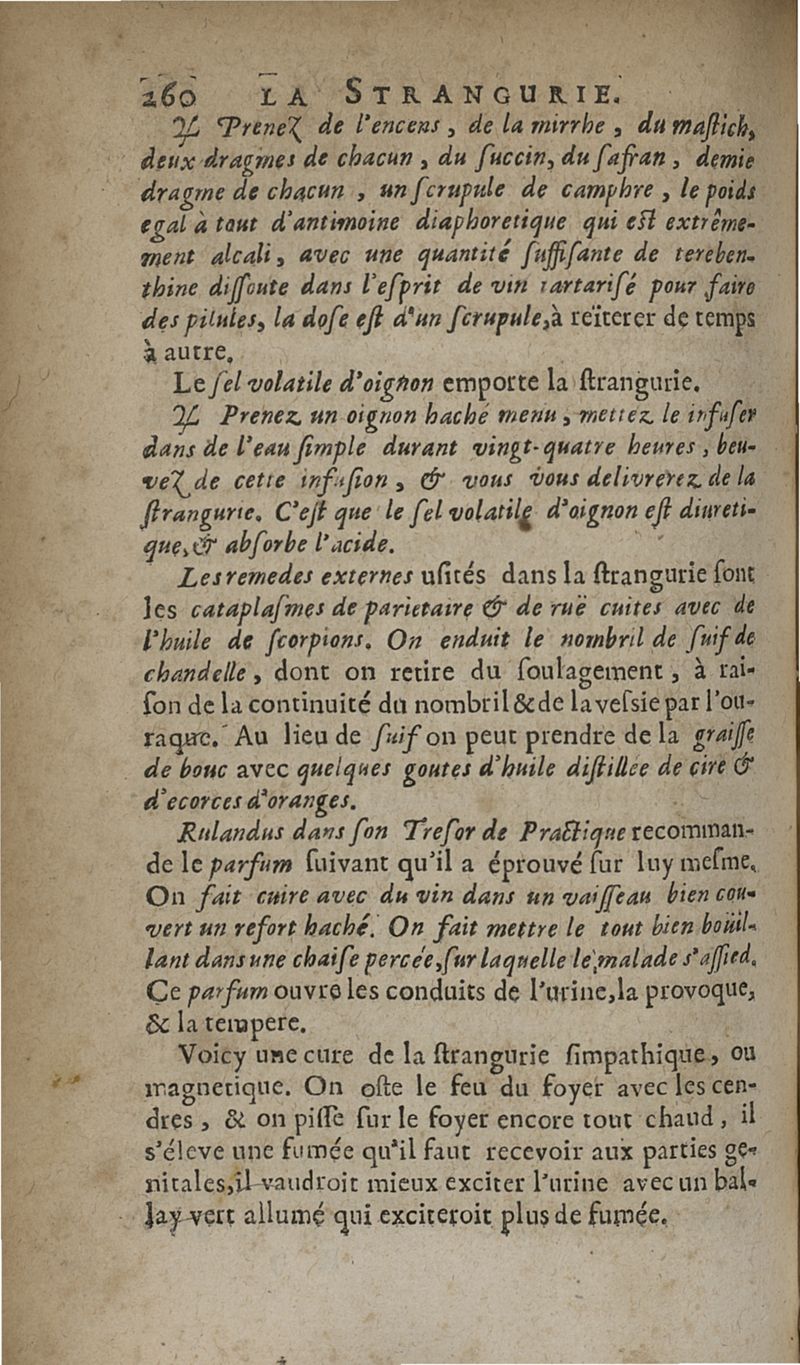 260 LA STRANGURIE.
♃ Prenez de l'encens, de la mirrhe, du maſtich,
deux dragmes de chacun, du ſuccin, du ſafran, demie
dragme de chacun, un ſcrupule de camphre, le poids
egal à tout d'antimoine diaphoretique qui eſt extrême-
ment alcali, avec une quantité ſuffiſante de tereben-
thine diſſoute dans l'eſprit de vin tartariſé pour faire
des pilules, la doſe eſt d'un ſcrupule, à reïterer de temps
à autre.
Le ſel volatile d'oignon emporte la ſtrangurie.
♃ Prenez un oignon haché menu, mettez le infuſer
dans de l'eau ſimple durant vingt-quatre heures, beu-
vez de cette infuſion, & vous vous delivrerez de la
ſtrangurie. C'eſt que le ſel volatile d'oignon eſt diureti-
que, & abſorbe l'acide.
Les remedes externes uſités dans la ſtrangurie ſont
les cataplaſmes de parietaire & de ruë cuites avec de
l'huile de ſcorpions. On enduit le nombril de ſuif de
chandelle, dont on retire du ſoulagement, à rai-
ſon de la continuité du nombril & de la veſsie par l'ou-
raque. Au lieu de ſuif on peut prendre de la graiſſe
de bouc avec quelques goutes d'huile diſtillée de cire &
d'ecorces d'oranges.
Rulandus dans ſon Treſor de Practique recomman-
de le parfum ſuivant qu'il a éprouvé ſur luy meſme.
On fait cuire avec du vin dans un vaiſſeau bien cou-
vert un refort haché. On fait mettre le tout bien boüil-
lant dans une chaiſe percée, ſur laquelle le malade s'aſſied.
Ce parfum ouvre les conduits de l'urine, la provoque,
& la tempere.
Voicy une cure de la ſtrangurie ſimpathique, ou
magnetique. On oſte le feu du foyer avec les cen-
dres, & on piſſe ſur le foyer encore tout chaud, il
s'éleve une fumée qu'il faut recevoir aux parties ge-
nitales, il vaudroit mieux exciter l'urine avec un bal-
lay vert allumé qui exciteroit plus de fumée.